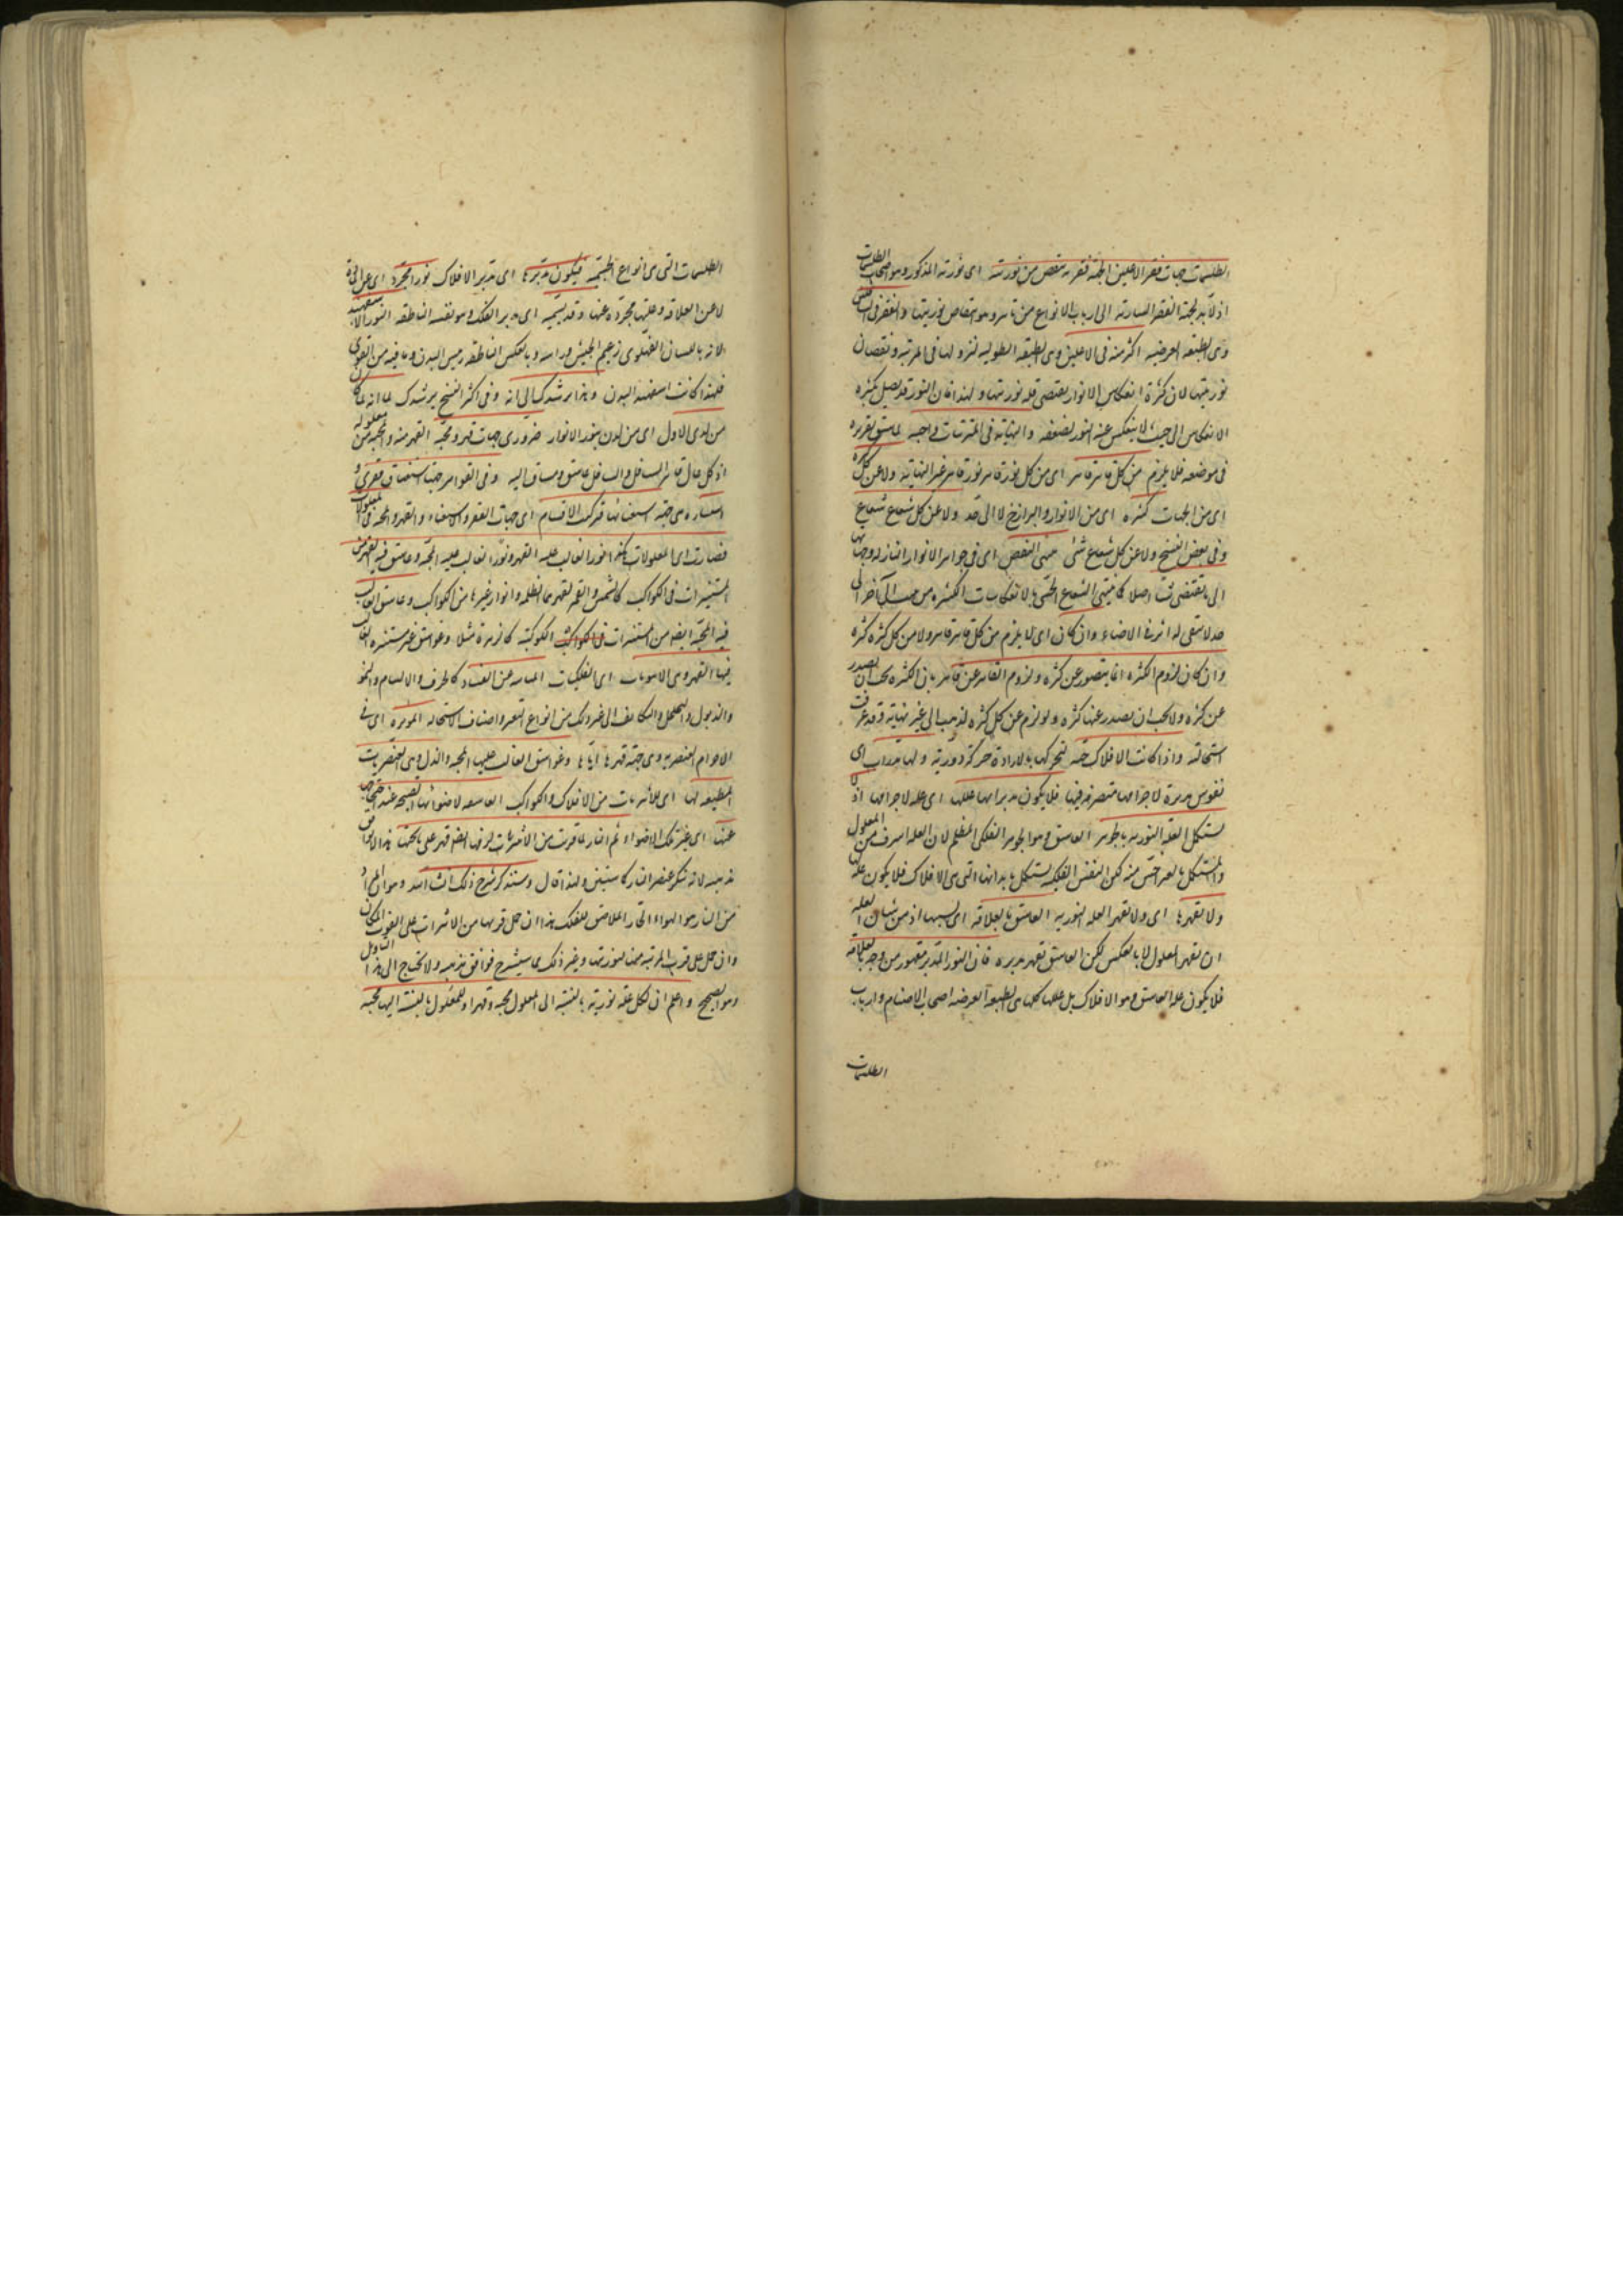 الطلسمات جهات فقر الاعلين الجمة فقر ينتقص من نوريته اى نورية المذكور وهو اصحاب الطلسمات
اذ لا بد لجهة الفقر السارية الى ارباب الانواع من تاثير وهو انتقاص نوريتها والفقر فى السافلين
وهى الطبقة العرضية اكثر منه فى الاعلين وهى الطبقة الطولية لنزولها فى المرتبة ونقصان
نوريتها لان كثرة انعكاس الانوار يقتضى قلة نوريتها ولهذا فان النور قد يصل بكثرة
الانعكاس الى حيث لا ينعكس عنه النور لضعفه والنهاية فى المترتبات واجبة لما سبق تقريره
فى موضعه فلا يلزم من كل قاهر قاهر اى من كل نور قاهر نور قاهر غير النهاية ولا عن كل كثرة
اى من الجهات كثرة اى من الانوار والبرازخ لا الى حد ولا عن كل شعاع شعاع
وفى بعض النسخ ولا عن كل شعاع شئ ينتهى النقص اى فى جواهر الانوار النازلة وجهاتها
الى ما لا يقتضى شيئا اصلا كما ينتهى الشعاع الحسى بالانعكاسات الكثيرة من حسب الى آخر الى
حد لا يبقى له اثر فى الاضاءة وان كان اى لا يلزم من كل قاهر قاهر ولا من كل كثرة كثرة
وان كان لزوم الكثرة انما يتصور عن كثرة ولزوم القاهر عن قاهر فان الكثرة يجب ان يصدر
عن كثرة ولا يجب ان يصدر عنها كثرة ولو لزم عن كل كثرة كثرة لذهب الى غير نهاية وقد عرفت
استحالته واذا كانت الافلاك حية لتحركها بالارادة حركة دورية ولها مدبرات اى
نفوس مدبرة لاجرامها متصرفة فيها فلا يكون مدبراتها عللها اى علة لاجرامها اذ لا
يستكمل العلة النورية بالجوهر الغاسق وهو الجوهر الفلكى المظلم لان العلة اشرف من المعلول
والمستكمل بالغير اخس منه لكن النفس الفلكية يستكمل بابدانها التى هى الافلاك فلا يكون علتها
ولا يقهرها اى ولا يقهر العلة النورية الغاسق بالعلاقة اى بسببها اذ من شان العلة
ان تقهر المعلول لا بالعكس لكن الغاسق يقهر مدبره فان النور المدبر مقهور من وجه بالعلاقة
فلا يكون علة الغاسق وهو الافلاك بل عللها كلها هى الطبقة العرضية اصحاب الاصنام وارباب
الطلسمات
الطلسمات التى هى انواع الجسمية فيكون مدبرها اى مدبر الافلاك نورا مجردا اى عن المادة
لا عن العلاقة وعلتها مجردة عنها وقد نسميه اى مدبر الفلك وهو نفسه الناطقة النور الاسفهبد
لانه باللسان الفهلوى زعيم الجيش وراسه وبالعكس الناطقة رئيس البدن وما فيه من القوى
فلهذا كانت اسفهبذ البدن وهذا يرشدك الى انه وفى اكثر النسخ يرشدك لما انه لما كان
من لدى الاول اى من لدن نور الانوار ضرورى جهات قهر ومحبة القهر منه والمحبة من معلوله
اذ كل عال قاهر السافل والسافل عاشق ومشتاق اليه وفى القواهر جهتا استغناء وفقر
استنارة هى جهة استغنائها تركبت الاقسام اى جهات الفقر والاستغناء والقهر والمحبة فى المعلولات
فصارت اى المعلولات كثيرة نورا الغالب عليه القهر ونورا الغالب عليه المحبة وغاسق فيه القهر من
المستنيرات فى الكواكب كالشمس والقمر لقهرهما الظلمة وانوار غيرهما من الكواكب وغاسق الغالب
فيه المحبة ايضا من المستنيرات فى الكواكب الكوكبية كالزهرة مثلا وغواسق غير مستنيرة الغالب
فيها القهر وهى الاثيريات اى الفلكيات المباينة عن الفساد كالخرق والالتيام والنمو
والذبول والتخلخل والتكاثف الى غير ذلك من انواع التغير واصناف الاستحالة المؤثرة اى فى
الاجرام العنصرية وهى جهة قهرها اياها وغواسق الغالب عليها المحبة والذل وهى العنصريات
المطيعة لها اى للاثيريات من الافلاك والكواكب العاشقة لاضوائها القبيحة عند احتجابها
عنها اى عن تلك الاضواء ثم النار لما قربت من الاثيريات لزمها ايضا قهر على ما تحتها هذا لا يوافق
مذهبه لانه ينكر عنصر النار كما ستبين ولهذا قال وسنذكر شرح ذلك ان شاء الله وهو ان المراد
من النار هو الهواء الحار الملاصق للفلك هذا ان حمل قربها من الاثيريات على القرب المكانى
وان حمل على قرب المرتبة منها لنوريتها وغير ذلك مما سيشرح فوافق مذهبه ولا يحتاج الى هذا التاويل
وهو الصحيح واعلم ان لكل علة نورية بالنسبة الى المعلول محبة وقهرا وللمعلول بالنسبة اليها محبة